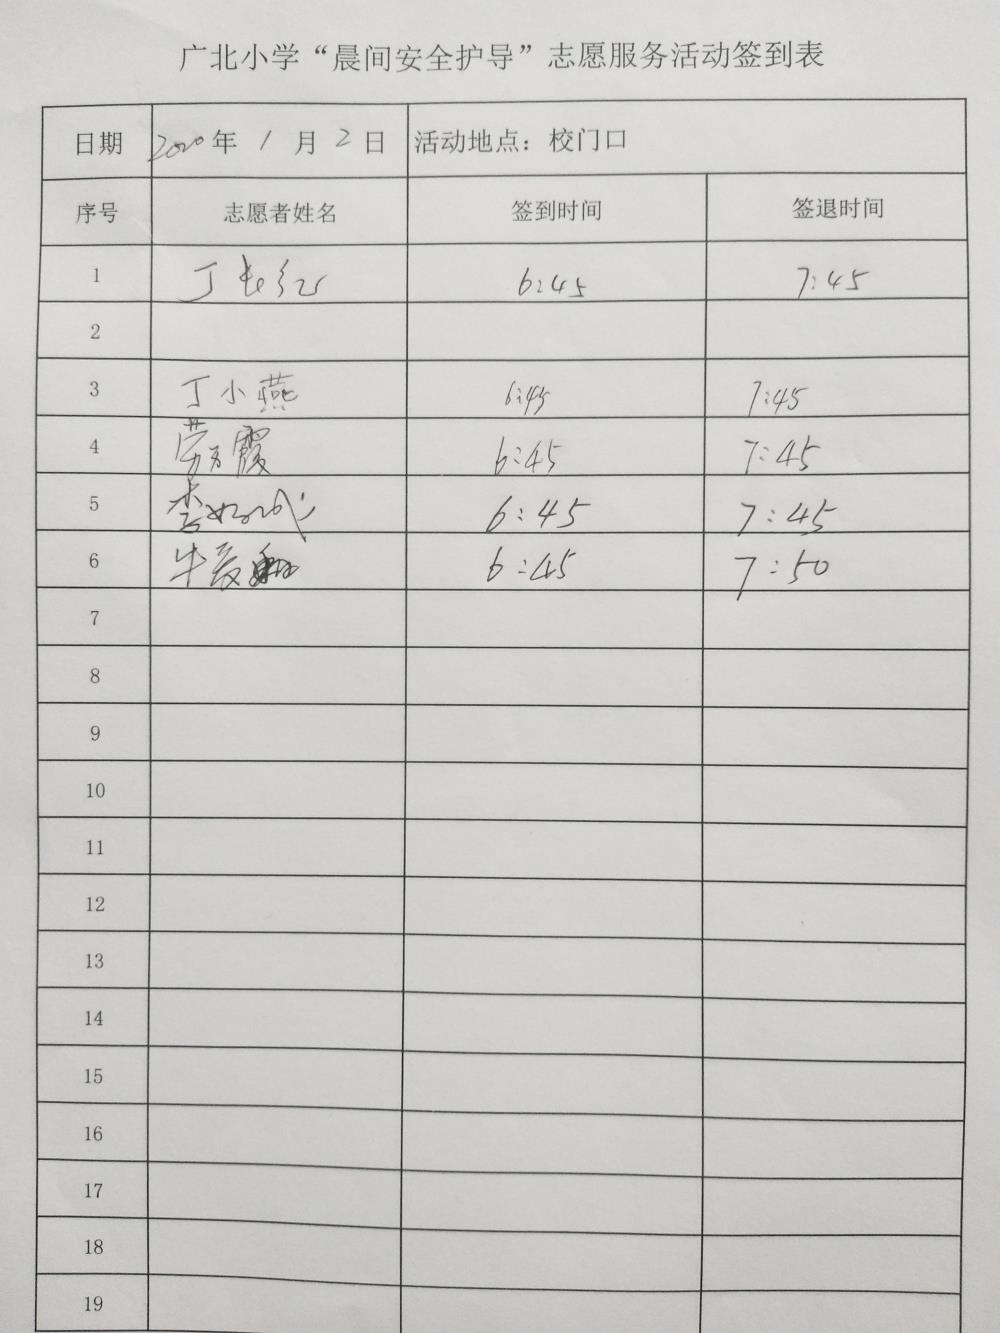 广北小学“晨间安全护导”志愿服务活动签到表
日期 2020年 1 月 2 日 活动地点：校门口
序号 志愿者姓名 签到时间 签退时间
1 丁长红 6:45 7:45
2
3 丁小燕 6:45 7:45
4 霞 6:45 7:45
5 李 6:45 7:45
6 牛 6:45 7:50
7
8
9
10
11
12
13
14
15
16
17
18
19